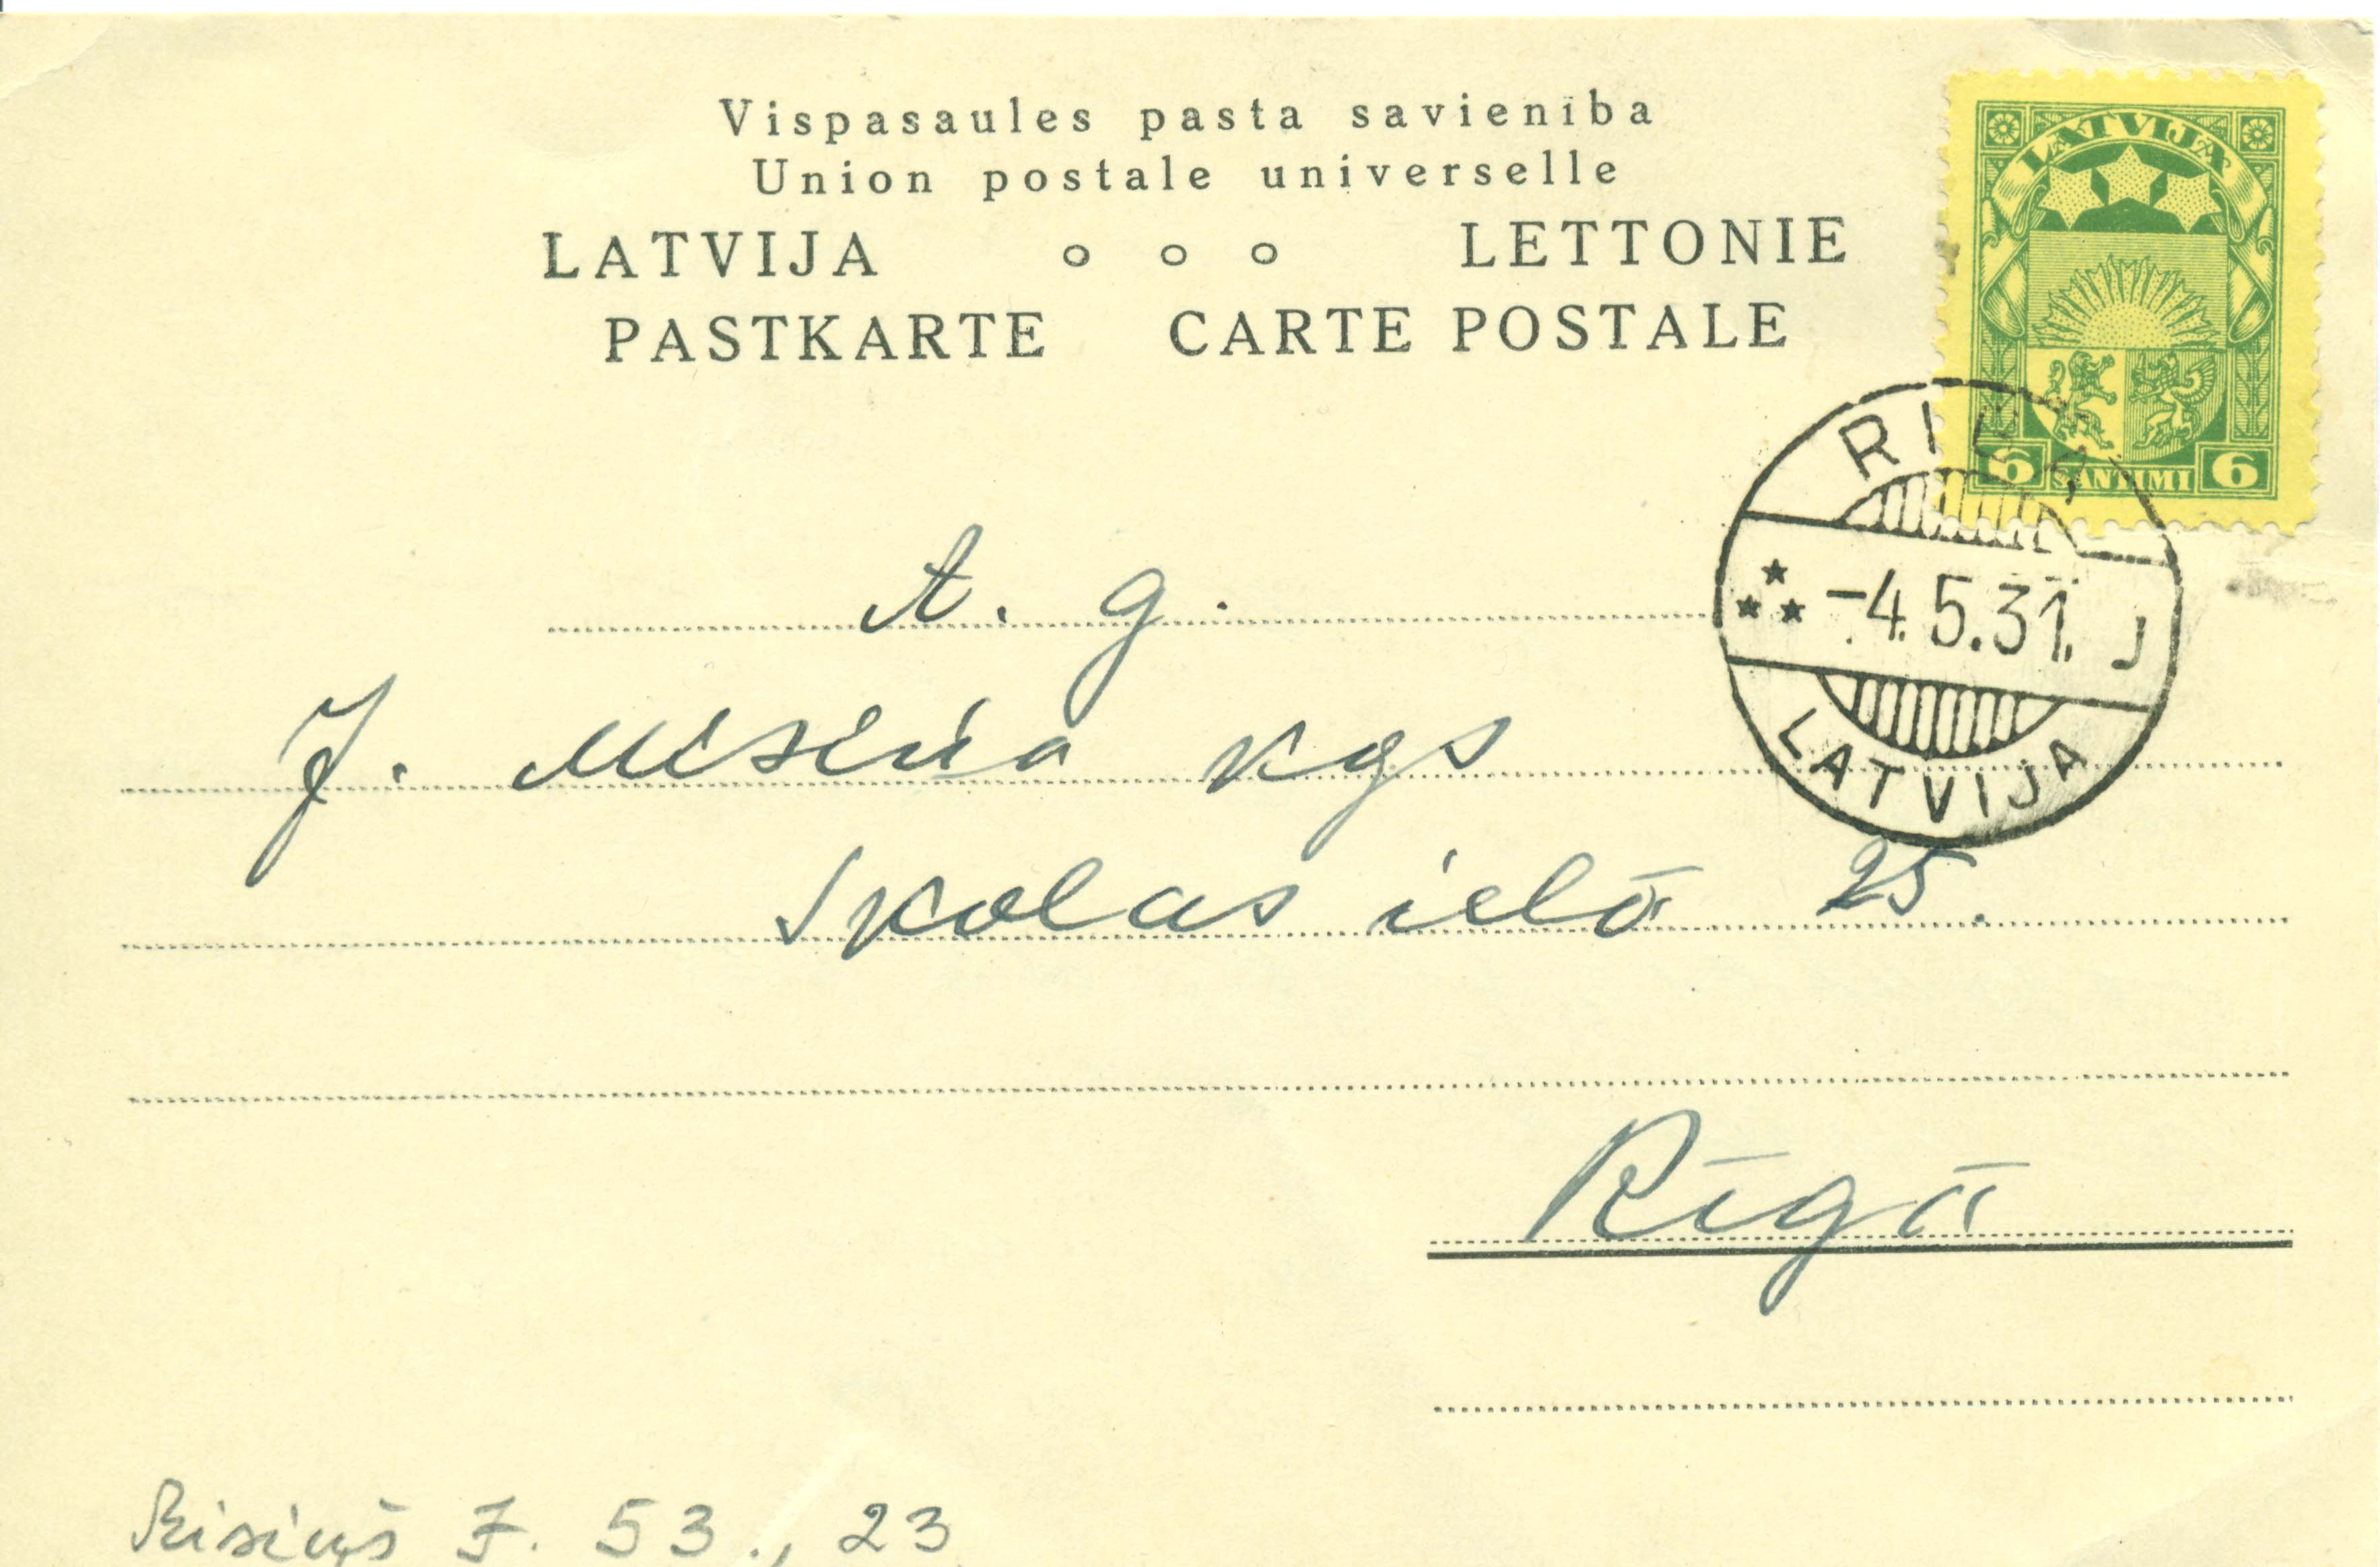 Vispasaules pasta savienība
Union postale universelle
LATVIJA o o o LETTONIE
PASTKARTE CARTE POSTALE
LATVIJA
6 SANTIMI 6
RIGA
-4.5.31. J
LATVIJA
A. g.
J. Misiņa kgs
Skolas ielā 25.
Rīgā
J. 53., 23